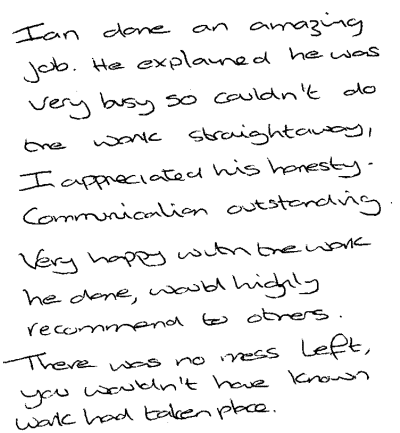 Ian done an amazing
job. He explained he was
very busy so couldn't do
the work straightaway,
I appreciated his honesty.
Communication outstanding.
Very happy with the work
he done, would highly
recommend to others.
There was no mess left,
you wouldn't have known
work had taken place.